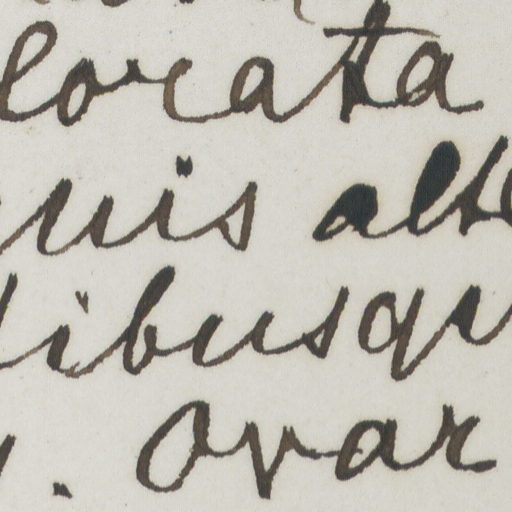 lorata
uis alte
ibusqu
. Ovar